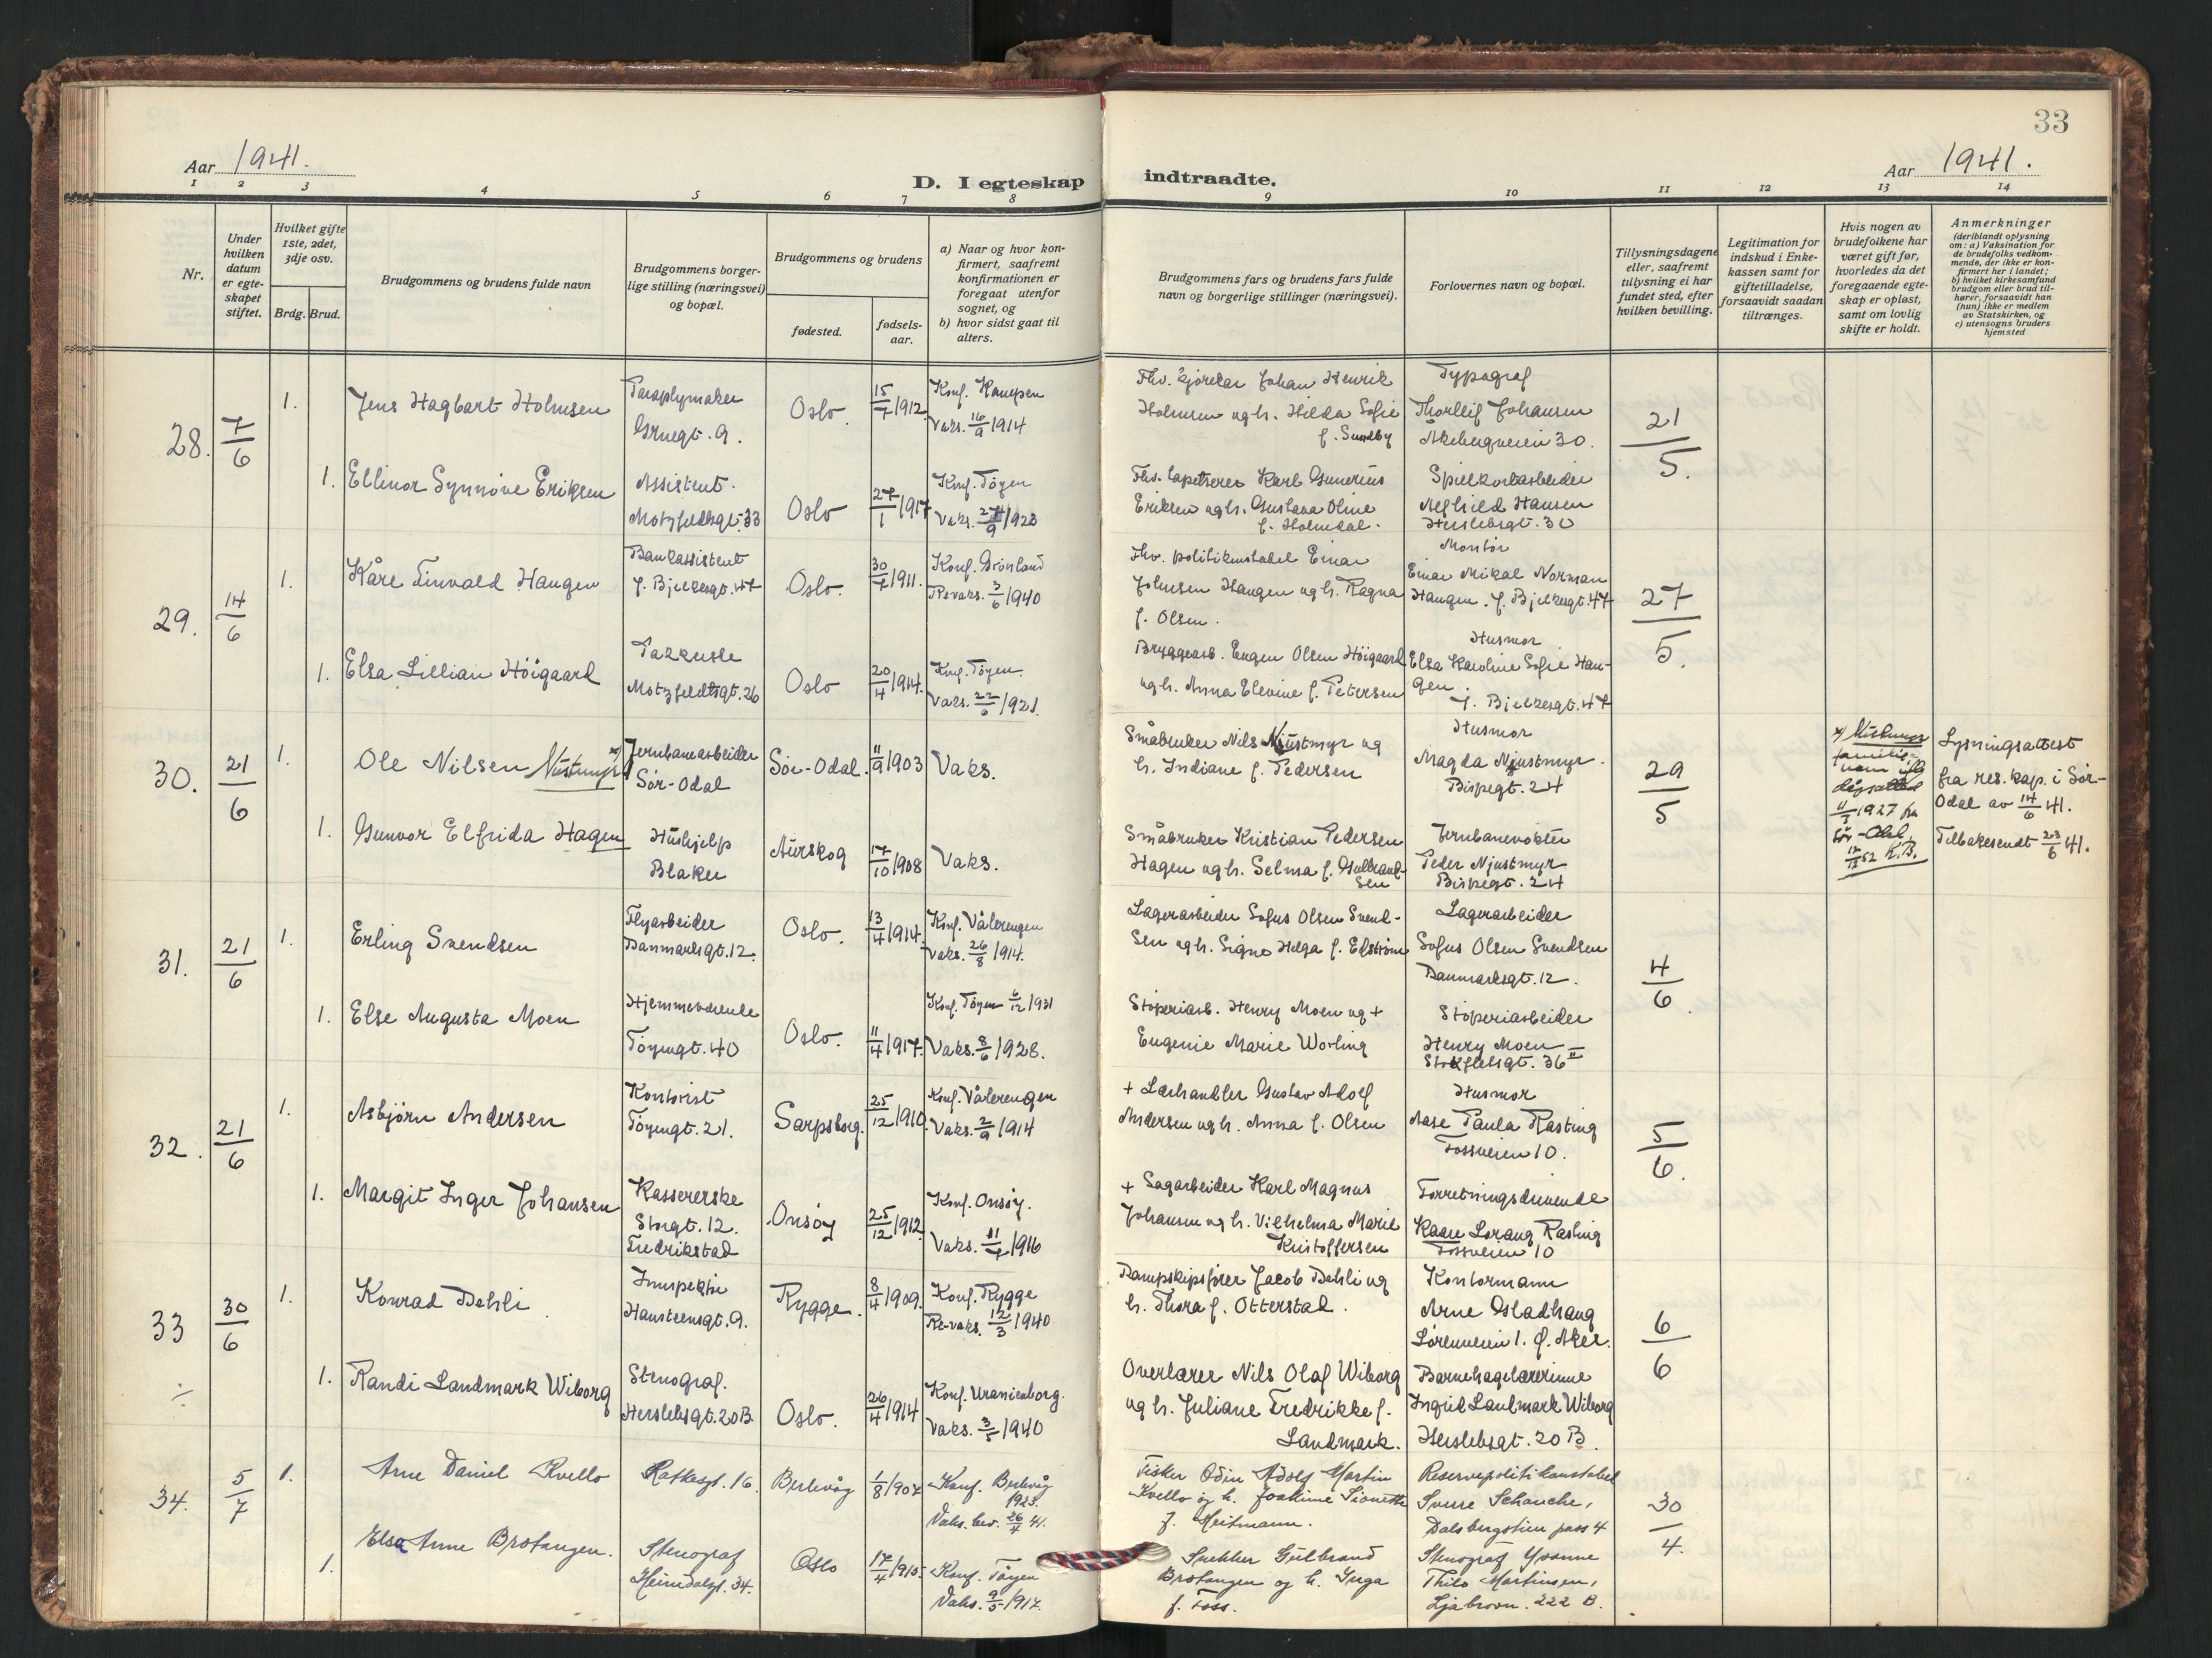 33
Aar 1941.
Aar 1941.
D. I egteskap indtraadte.
1 2 3 4 5 6 7 8 9 10 11 12 13 14
Nr.
Under hvilken datum er egteskapet stiftet.
Hvilket gifte 1ste, 2det, 3dje osv.
Brdg. Brud.
Brudgommens og brudens fulde navn
Brudgommens borgerlige stilling (næringsvei) og bopæl.
Brudgommens og brudens
fødested.
fødselsaar.
a) Naar og hvor konfirmert, saafremt konfirmationen er foregaat utenfor sognet, og
b) hvor sidst gaat til alters.
Brudgommens fars og brudens fars fulde navn og borgerlige stillinger (næringsvei).
Forlovernes navn og bopæl.
Tillysningsdagene eller, saafremt tillysning ei har fundet sted, efter hvilken bevilling.
Legitimation for indskud i Enkekassen samt for giftetilladelse, forsaavidt saadan tiltrænges.
Hvis nogen av brudefolkene har været gift før, hvorledes da det foregaaende egteskap er opløst, samt om lovlig skifte er holdt.
Anmerkninger
(deriblandt oplysning om: a) Vaksination for de brudefolks vedkommende, der ikke er konfirmert her i landet;
b) hvilket kirkesamfund brudgom eller brud tilhører, forsaavidt han (hun) ikke er medlem av Statskirken, og
c) utensogns bruders hjemsted
28. 7/6
1. Jens Hagbart Holmsen
Paraplymaker
Gruegt. 9.
Oslo. 15/7 1912
Konf. Kampen
Vaks. 16/9 1914
Fhv. kjörekar Johan Henrik
Holmsen og h. Hilda Sofie
f. Sundby
Typograf
Thorleif Johansen
Åkebergveien 30.
21/5.
1. Ellinor Synnöve Eriksen
Assistent.
Motzfeldtsgt. 33
Oslo 27/1 1917
Konf. Töyen
Vaks. 27/9 1923
Fhv. tapetserer Karl Gunerius
Eriksen og h. Gustava Oline
f. Holmdal.
Spielkortarbeider
Ragnhild Hansen
Herslebsgt. 30
29. 14/6
1. Kåre Finvald Haugen
Bankassistent
J. Bjelkesgt. 47
Oslo. 30/7 1911.
Konf. Grönland
Revaks. 3/6 1940
Fhv. politikonstabel Einar
Johnsen Haugen og h. Ragna
f. Olsen.
Montör
Einar Mikal Norman
Haugen. J. Bjelkesgt. 47
27/5.
1. Elsa Lillian Höigaard
Pakkerske
Motzfeldtsgt. 26
Oslo 20/4 1914.
Konf. Töyen.
Vaks. 22/6 1921.
Bryggearb. Eugen Olsen Höigaard
og h. Anna Elevine f. Petersen
Husmor
Elsa Karoline Sofie Haugen.
J. Bjelkesgt. 47
30. 21/6
1. Ole Nilsen Njustmyr x)
Jernbanearbeider
Sör-Odal
Sör-Odal. 11/9 1903
Vaks.
Småbruker Nils Njustmyr og
h. Indiane f. Pedersen
Husmor
Magda Njustmyr.
Bispegt. 24
29/5
1927 fra
Sör-Odal
K.B.
Lysningsattest
fra res. kap. i Sör-
Odal av 14/6 41.
Tilbakesendt 23/6 41.
1. Gunvor Elfrida Hagen
Hushjelp
Blaker
Aurskog 17/10 1908
Vaks.
Småbruker Kristian Pedersen
Hagen og h. Selma f. Gulbrandsen
Jernbanevokter
Peder Njustmyr
Bispegt. 24
31. 21/6
1. Erling Svendsen
Flyarbeider
Danmarksgt. 12.
Oslo. 13/4 1914.
Konf. Vålerengen
Vaks. 26/8 1914.
Lagerarbeider Sofus Olsen Svendsen
og h. Signe Helga f. Edström
Lagerarbeider
Sofus Olsen Svendsen
Danmarksgt. 12.
4/6.
1. Else Augusta Moen
Hjemmeværende
Töyengt. 40
Oslo. 11/4 1917.
Konf. Töyen 6/12 1931
Vaks. 8/6 1928.
Stöperiarb. Henry Moen og +
Eugenie Marie Worling
Stöperiarbeider
Henry Moen
Stokfletsgt. 36 II
32. 21/6
1. Asbjörn Andersen
Kontorist
Töyengt. 21.
Sarpsborg. 25/12 1910.
Konf. Vålerengen
Vaks. 2/9 1914
+ Lærhandler Gustav Adolf
Andersen og h. Anna f. Olsen
Husmor
Aase Paula Rasting
Fossveien 10.
5/6.
1. Margit Inger Johansen
Kassererske
Storgt. 12.
Fredrikstad
Onsöy 25/12 1912.
Konf. Onsöy.
Vaks. 11/7 1916
+ Sagarbeider Karl Magnus
Johansen og h. Vilhelma Marie
Kristoffersen
Forretningsdrivende
Kaare Lorang Rasting
Fossveien 10
33 30/6
1. Konrad Dehli
Inspektör
Hansteensgt. 9.
Rygge. 8/4 1909.
Konf. Rygge
Re-vaks. 12/3 1940
Dampskipsförer Jacob Dehli og
h. Thora f. Otterstad.
Kontormann
Arne Ostadhaug
Sörenveien 1. Ö. Aker.
6/6
÷
1. Randi Landmark Wiborg
Stenograf.
Herslebsgt. 20 B.
Oslo. 26/4 1914
Konf. Uranienborg.
Vaks. 3/5 1940
Overlærer Nils Olaf Wiborg
og h. Juliane Fredrikke f.
Landmark.
Barnehagelærerinne
Ingrid Landmark Wiborg
Herslebsgt. 20 B.
34. 5/7
1. Arne Daniel Kvello
Rathesgt. 16.
Berlevåg 1/8 1907
Konf. Berlevåg
1923.
Vaks. bev. 26/4 41.
Fisker Odin Adolf Martin
Kvello og h. Joakime Sionette
f. Heitmann.
Reservepolitikonstabel
Sverre Schanche,
Dalsbergstien pass 4
30/4.
1. Elsa Anne Brotangen.
Stenograf
Heimdalsgt. 34.
Oslo 17/4 1915.
Konf. Töyen
Vaks. 9/5 1917.
Snekker Gulbrand
Brotangen og h. Inga
f. Foss.
Stenograf Yvonne
Thilo Martinsen,
Ljabrovn. 222 B.